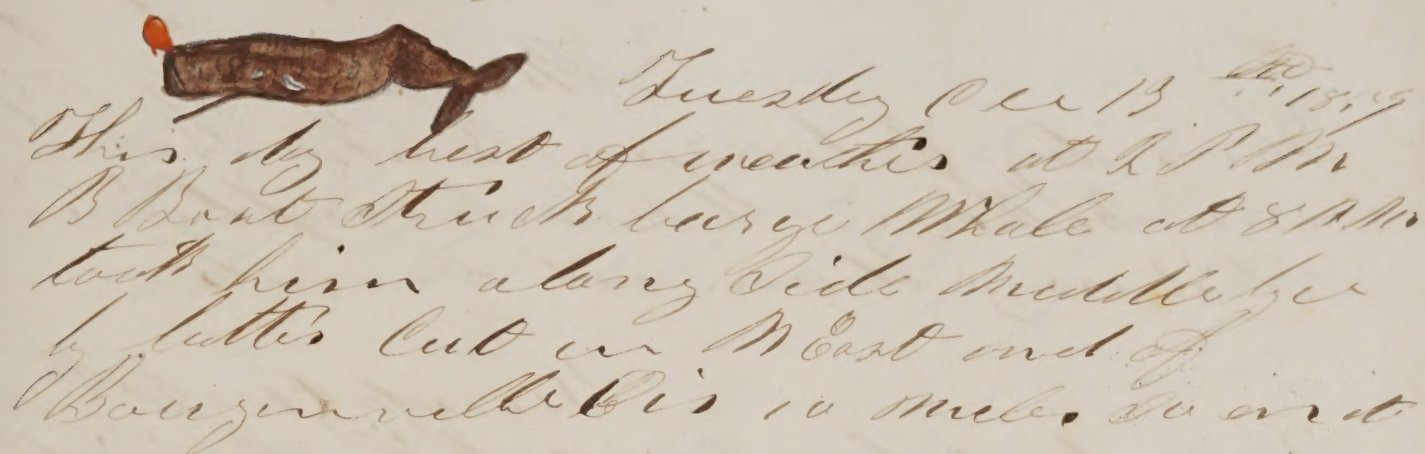 Tuesday Dec 13 th 1859
This day best of weather at 2 P M
B Boat Struck large Whale at 8 P M
took him along Side
by Cut in N East end of
Bougenville Dis 10 miles So ends